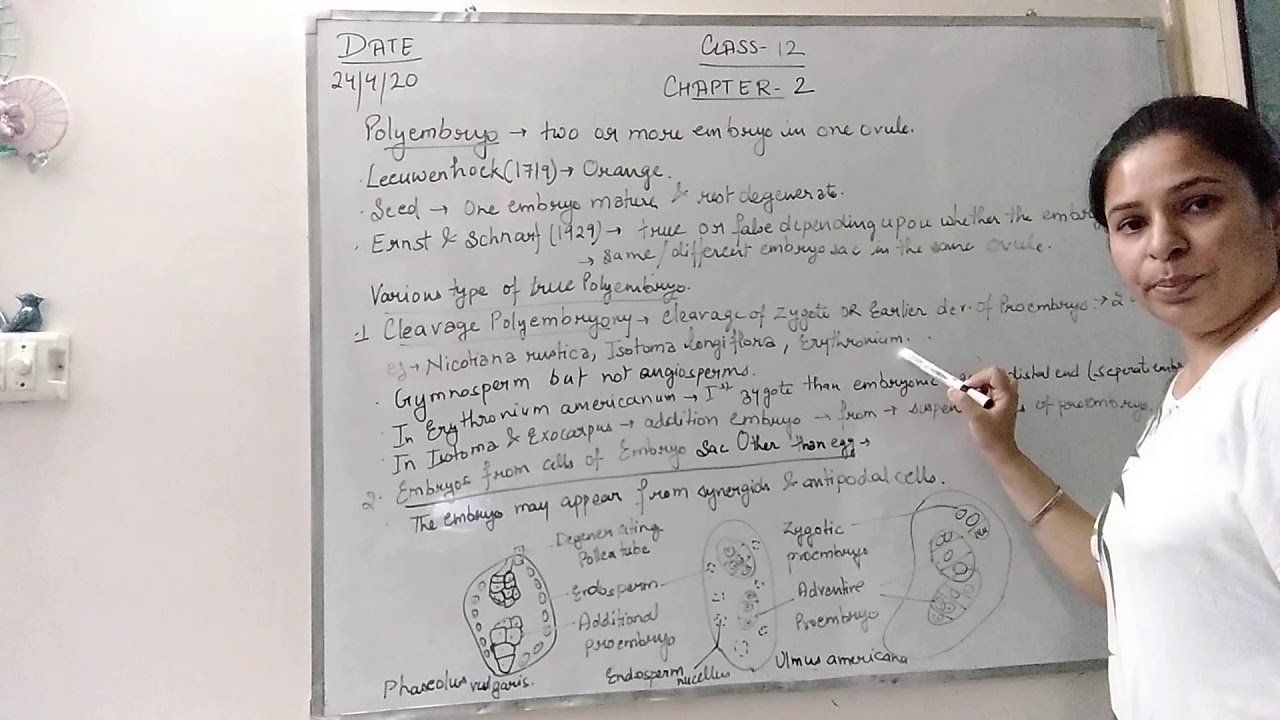 DATE
24/4/20
CLASS-12
CHAPTER-2
Polyembryo → two or more embryo in one ovule.
· Leeuwenhock (1719) → Orange.
· Seed → One embryo mature & rest degenerate.
· Ernst & Schnarf (1929) → true or false depending upon whether the embr
→ same/different embryo sac in the same ovule.
Various type of true Polyembryo.
·1 Cleavage Polyembryony → cleavage of Zygote OR Earlier dev. of Proembryo. → 2
eg → Nicotiana rustica, Isotoma longiflora, Erythronium.
· Gymnosperm but not angiosperms.
· In Erythronium americanum → Ist zygote than embryonic distal end (seperate embr
· In Isotoma & Exocarpus → addition embryo → from → suspen of proembryo.
2. Embryos from cells of Embryo Sac Other than egg →
· The embryo may appear from synergids & antipodal cells.
Degenerating
Pollen tube
Endosperm
Additional
proembryo
Phaseolus vulgaris.
Zygotic
proembryo
Adventive
Proembryo
Endosperm
nucellus
Ulmus americana